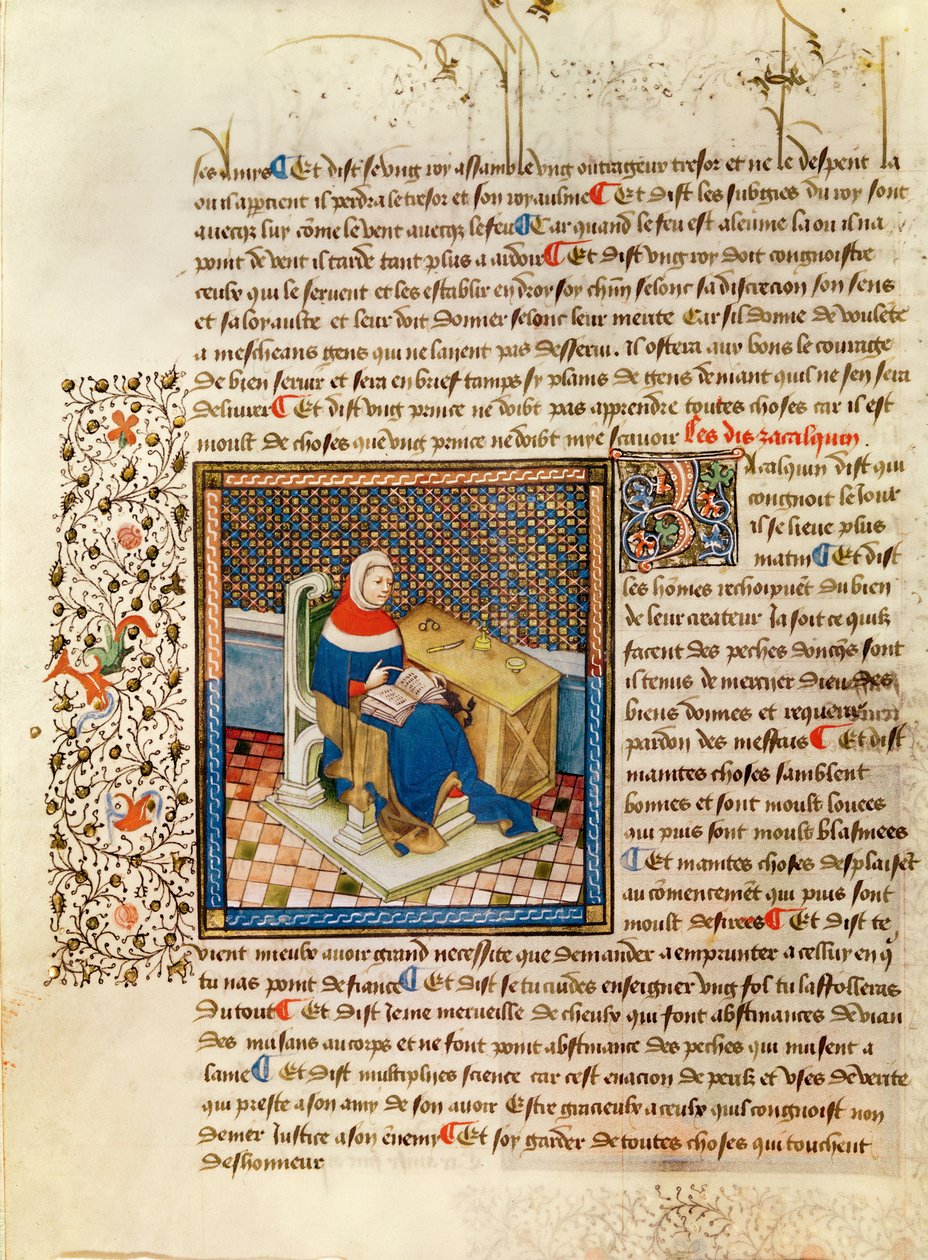 ses amys ¶ Et dist se ung roy assamble ung oultrageux tresor et ne le despent la
ou il apptient il perdra le tresor et son royaulme ¶ Et dist les subgies du roy sont
auecqz luy cõme le vent auecqz le feu ¶ Car quand le feu est aleume la ou il na
point de vent il tarde tant plus a ardoir ¶ Et dist ung roy doit congnoistre
ceulx qui le seruent et les establir endroy soy chũn selonc sa discrecion son sens
et sa loyaulte et leur doit donner selonc leur merite Car sil donne de voulẽte
a mescheans gens qui ne laient pas desserui. Il ostera aux bons le courage
de bien seruir et sera en brief tamps sy plains de gens de niant quil ne sen sera
deliurer ¶ Et dist ung prince ne doibt pas apprendre toutes choses car il est
moult de choses que ung prince ne doibt mye scauoir Les dis zacalquin.
Zacalquin dist qui
congnoit le Jour
il se lieue plus
matin ¶ Et dist
les hõmes rechoipuẽt du bien
de leur createur Ja soit ce quilz
facent des peches doncqs sont
il tenus de mercyer dieu des
biens donnes et requerir
pardon des meffais ¶ Et dist
maintes choses samblent
bonnes et sont moult louees
qui puis sont moult blasmees
¶ Et maintes choses desplaisẽt
au cõmencemẽt qui puis sont
moult desirees ¶ Et dist te
vient mieulx auoir grand necessite que demander a emprunter a celluy en q̃
tu nas point de fiance ¶ Et dist se tu cuides enseigner ung fol tu laffolleras
du tout ¶ Et dist Je me merueille de cheulx qui font abstinances de vian
des nuisans au corps et ne font point abstinance des peches qui nuisent a
lame ¶ Et dist multiplijes science car cest euacion de perilz et vses de verite
qui preste a son amy de son auoir Estre gracieulx a ceulx quil congnoist non
deuier Justice a son ẽnemy ¶ Et soy garder de toutes choses qui touchent
deshonneur